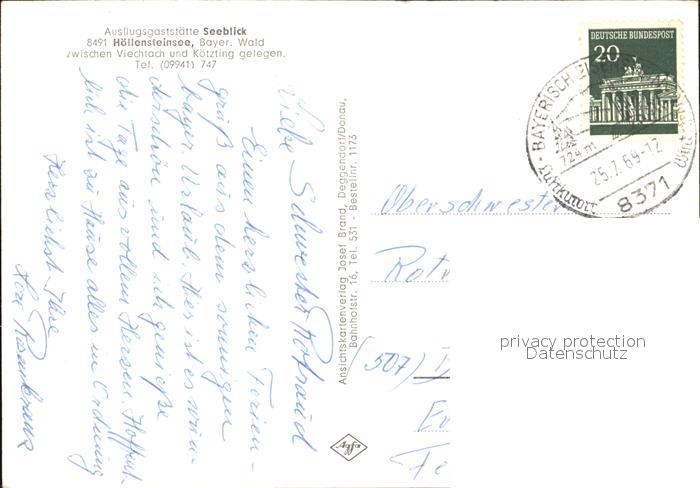 Ausflugsgaststätte Seeblick
8491 Höllensteinsee, Bayer. Wald
zwischen Viechtach und Kötzting gelegen.
Tel. (09941) 747
Liebe Schwester
Einen herzlichen Ferien-
gruß aus dem sonnigen
bayer. Urlaub. Hier ist es wun-
derschön und ich genieße
die Tage aus vollem Herzen. Hoffent-
lich ist zu Hause alles in Ordnung
Herzlichst Ihre
Rosenkranz
Ansichtskartenverlag Josef Brand, Deggendorf/Donau,
Bahnhofstr. 16, Tel. 531 - Bestellnr. 1173
Agfa
DEUTSCHE BUNDESPOST
20
BAYERISCH EISENS
724 m
25.7.69-12
Luftkurort
8371
Oberschwester
Rot
(507)
privacy protection
Datenschutz